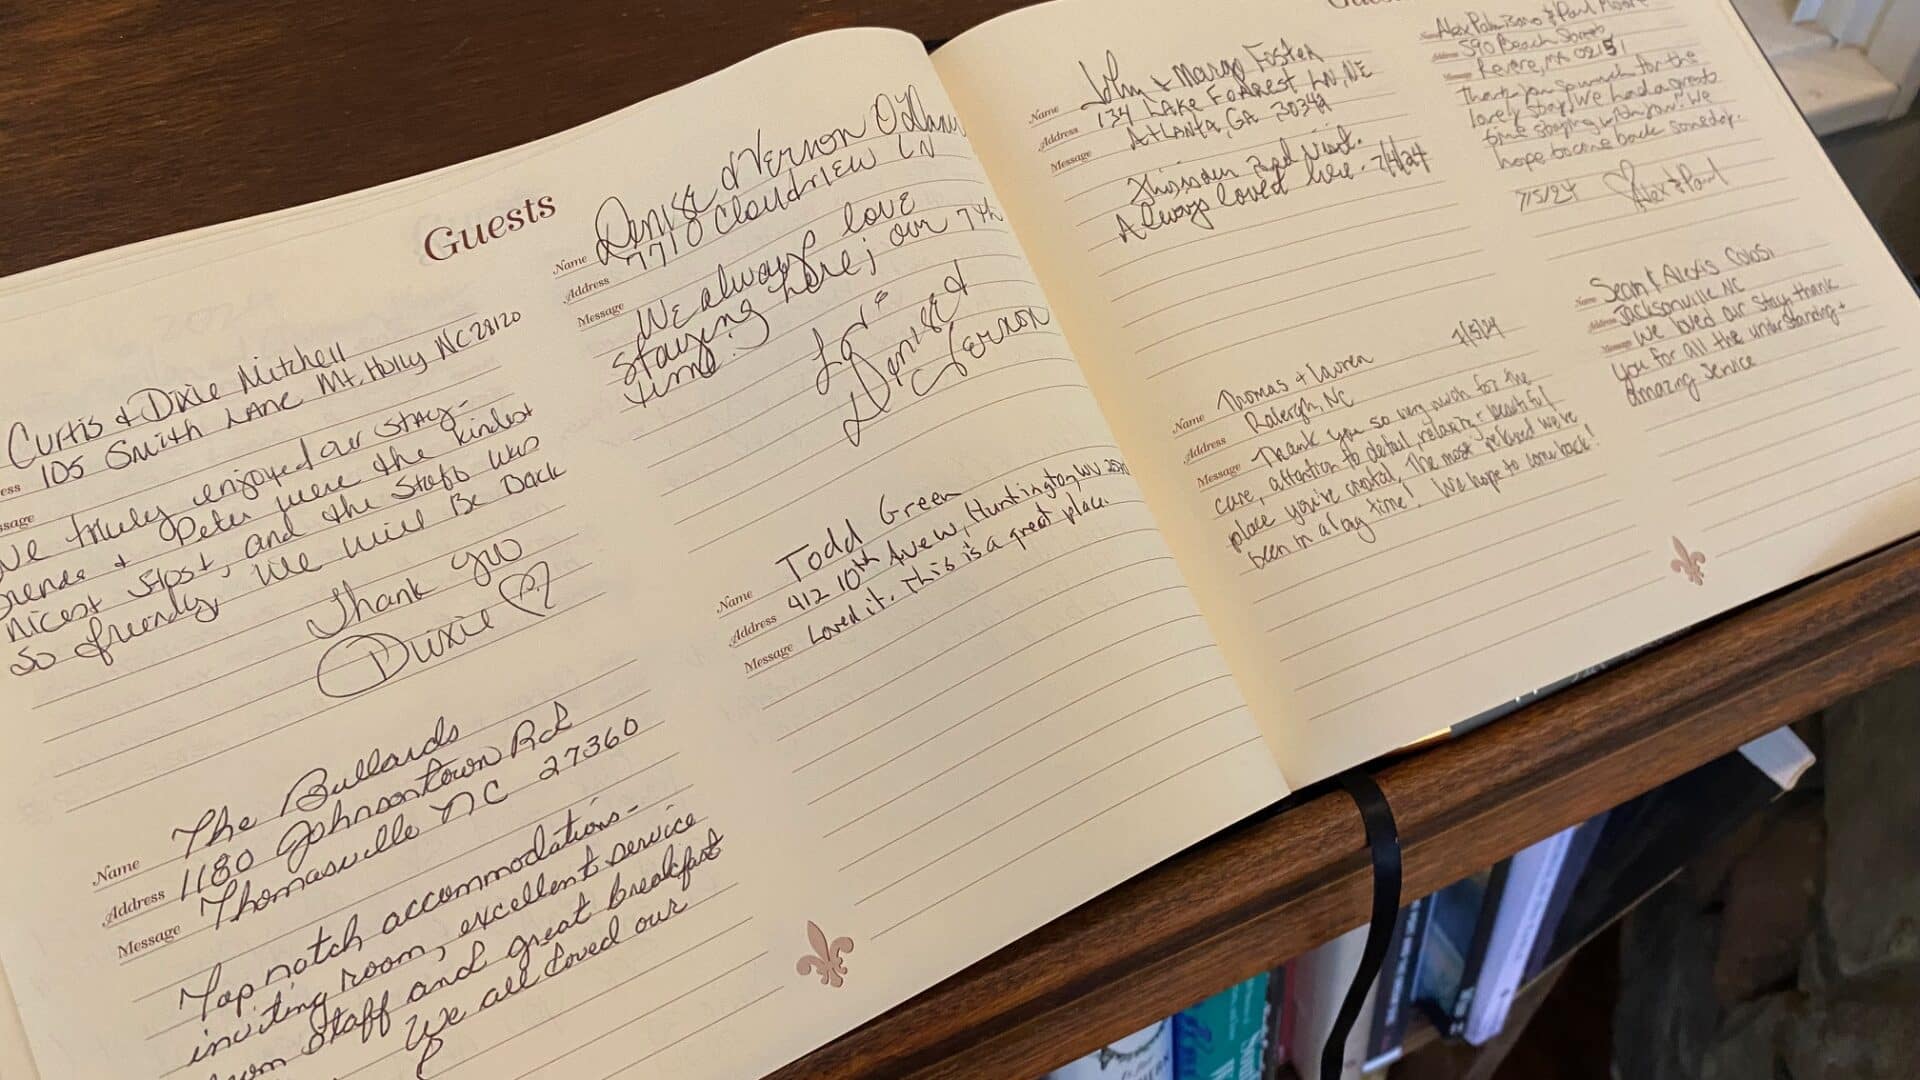 Guests
Curtis & Dixie Mitchell
105 Smith Lane Mt. Holly NC 28120
truly enjoyed our stay-
& Peter were the kindest
nicest and the Staff was
so friendly, We will Be Back
Thank you
Dixie
Name The Bullards
Address 1180 Johnsontown Rd
Message Thomasville NC 27360
Top notch accommodations-
inviting room, excellent service
from staff and great breakfast
We all loved our
Name Denise & Vernon
Address 7710 Cloudview LN
Message We always love
staying here; our 7th
time!
Love
Denise &
Vernon
Name Todd Green
Address 412 10th Ave W, Huntington WV
Message Loved it. This is a great place.
Name John & Margo Foster
Address 134 Lake Forrest LN, NE
Message Atlanta, GA
2nd visit.
Always loved here. 7/4/24
Name Thomas + Lauren 7/5/24
Address Raleigh, NC
Message Thank you so very much for the
care, attention to detail, relaxing & beautiful
place you've created. The most relaxed we've
been in a long time! We hope to come back!
Name Alex & Paul Moore
Address 590 Beach Street
Message Revere, MA 02151
Thank you so much for the
lovely stay. We had a great
time staying with you. We
hope to come back someday.
7/5/24 Alex & Paul
Name Sean & Alexis Colosi
Address Jacksonville NC
Message We loved our stay, thank
you for all the understanding +
amazing service